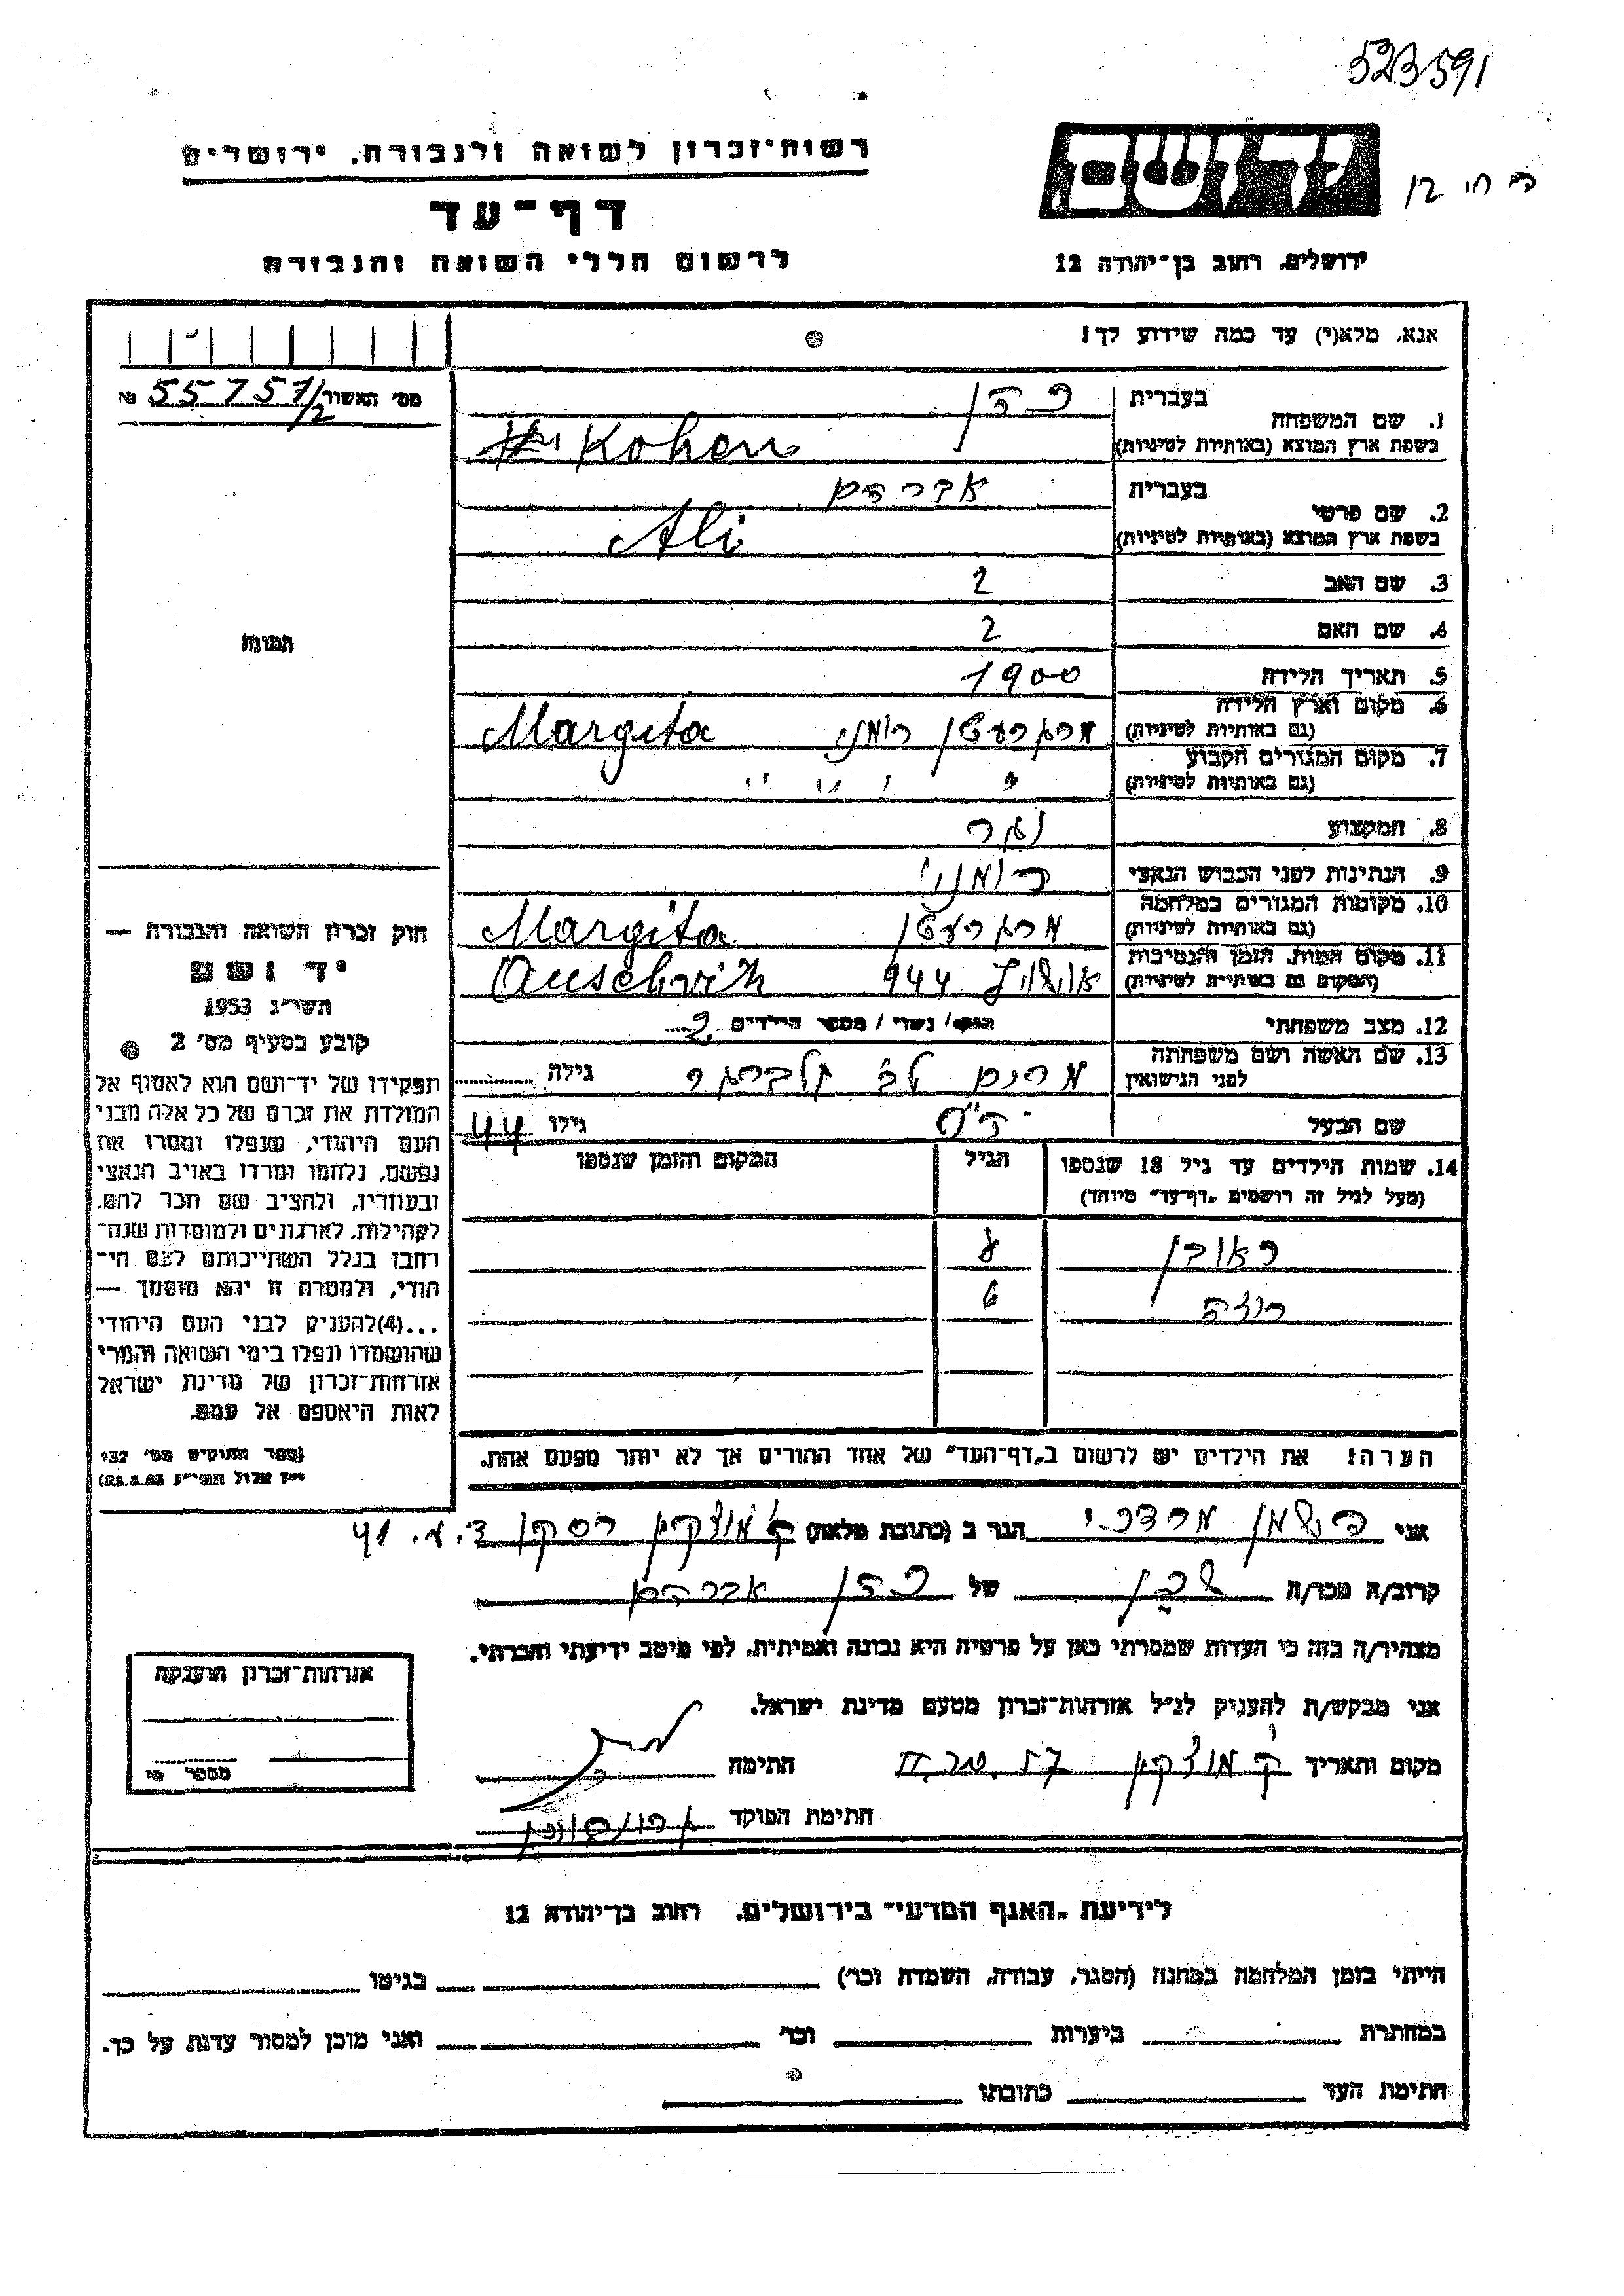 523591
רשות־זכרון לשואה ולגבורה, ירושלים
דף־עד
לרשום חללי השואה והגבורה
ירושלים, רחוב בן־יהודה 12
אנא, מלא(י) עד כמה שידוע לך!
מס' האשור 55757/2 №
1. שם המשפחה
בעברית כהן
בשפת ארץ המוצא (באותיות לטיניות) Kohen
2. שם פרטי
בעברית אברהם
בשפת ארץ המוצא (באותיות לטיניות) Ali
3. שם האב ?
4. שם האם ?
5. תאריך הלידה 1900
6. מקום וארץ הלידה (גם באותיות לטיניות) מרגרעטן רומני Margita
7. מקום המגורים הקבוע (גם באותיות לטיניות) " " " "
8. המקצוע נגר
9. הנתינות לפני הכבוש הנאצי רומני
10. מקומות המגורים במלחמה (גם באותיות לטיניות) מרגרעטן Margita
11. מקום המות, הזמן והנסיבות (המקום גם באותיות לטיניות) אושויץ 944 Auschvitz
12. מצב משפחתי / נשוי / מספר הילדים 2
13. שם האשה ושם משפחתה לפני הנישואין מרים גילה
שם הבעל גילו 44
14. שמות הילדים עד גיל 18 שנספו הגיל המקום והזמן שנספו
(מעל לגיל זה רושמים „דף־עד" מיוחד)
ראובן 8
רוזה 6
הערה! את הילדים יש לרשום ב„דף־העד" של אחד ההורים אך לא יותר מפעם אחת.
תמונה
חוק זכרון השואה והגבורה —
יד ושם
תשי"ג 1953
קובע בסעיף מס' 2
תפקידו של יד־ושם הוא לאסוף אל
המולדת את זכרם של כל אלה מבני
העם היהודי, שנפלו ומסרו את
נפשם, נלחמו ומרדו באויב הנאצי
ובעוזריו, ולהציב שם וזכר להם,
לקהילות, לארגונים ולמוסדות שנח־
רבו בגלל השתייכותם לעם הי־
הודי, ולמטרה זו יהא מוסמך —
...(4) להעניק לבני העם היהודי
שהושמדו ונפלו בימי השואה והמרי
אזרחות־זכרון של מדינת ישראל
לאות היאספם אל עמם.
(ספר החוקים מס' 132
י"ז אלול תשי"ג 28.8.53)
אני מרדכי הגר ב (כתובת מלאה) ק. מוצקין רסקו ד.מ. 41
קרוב/ה מכר/ה שכן של כהן אברהם
מצהיר/ה בזה כי העדות שמסרתי כאן על פרטיה היא נכונה ואמיתית, לפי מיטב ידיעתי והכרתי.
אני מבקש/ת להעניק לנ"ל אזרחות־זכרון מטעם מדינת ישראל.
מקום ותאריך ק. מוצקין חתימה
חתימת הפוקד
אזרחות־זכרון הוענקה
מספר
לידיעת „האגף המדעי" בירושלים, רחוב בן־יהודה 12
הייתי בזמן המלחמה במחנה (הסגר, עבודה, השמדה וכו') בגיטו
במחתרת ביערות וכו' ואני מוכן למסור עדות על כך.
חתימת העד כתובתו